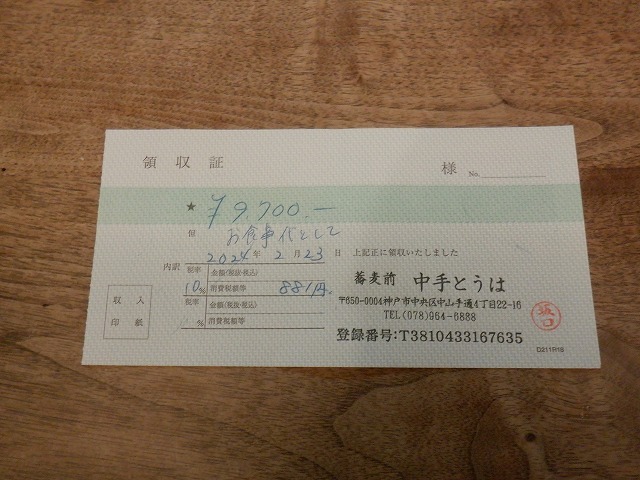 領収証
様 No.
★ ¥9,700.—
但 お食事代として
2024年 2月 23日 上記正に領収いたしました
内訳 税率 金額(税抜・税込)
10% 消費税額等 881円
税率 金額(税抜・税込)
% 消費税額等
収入
印紙
蕎麦前 中手とうは
〒650-0004神戸市中央区中山手通4丁目22-16
TEL(078)964-6888
登録番号:T3810433167635
坂口
D211R1S